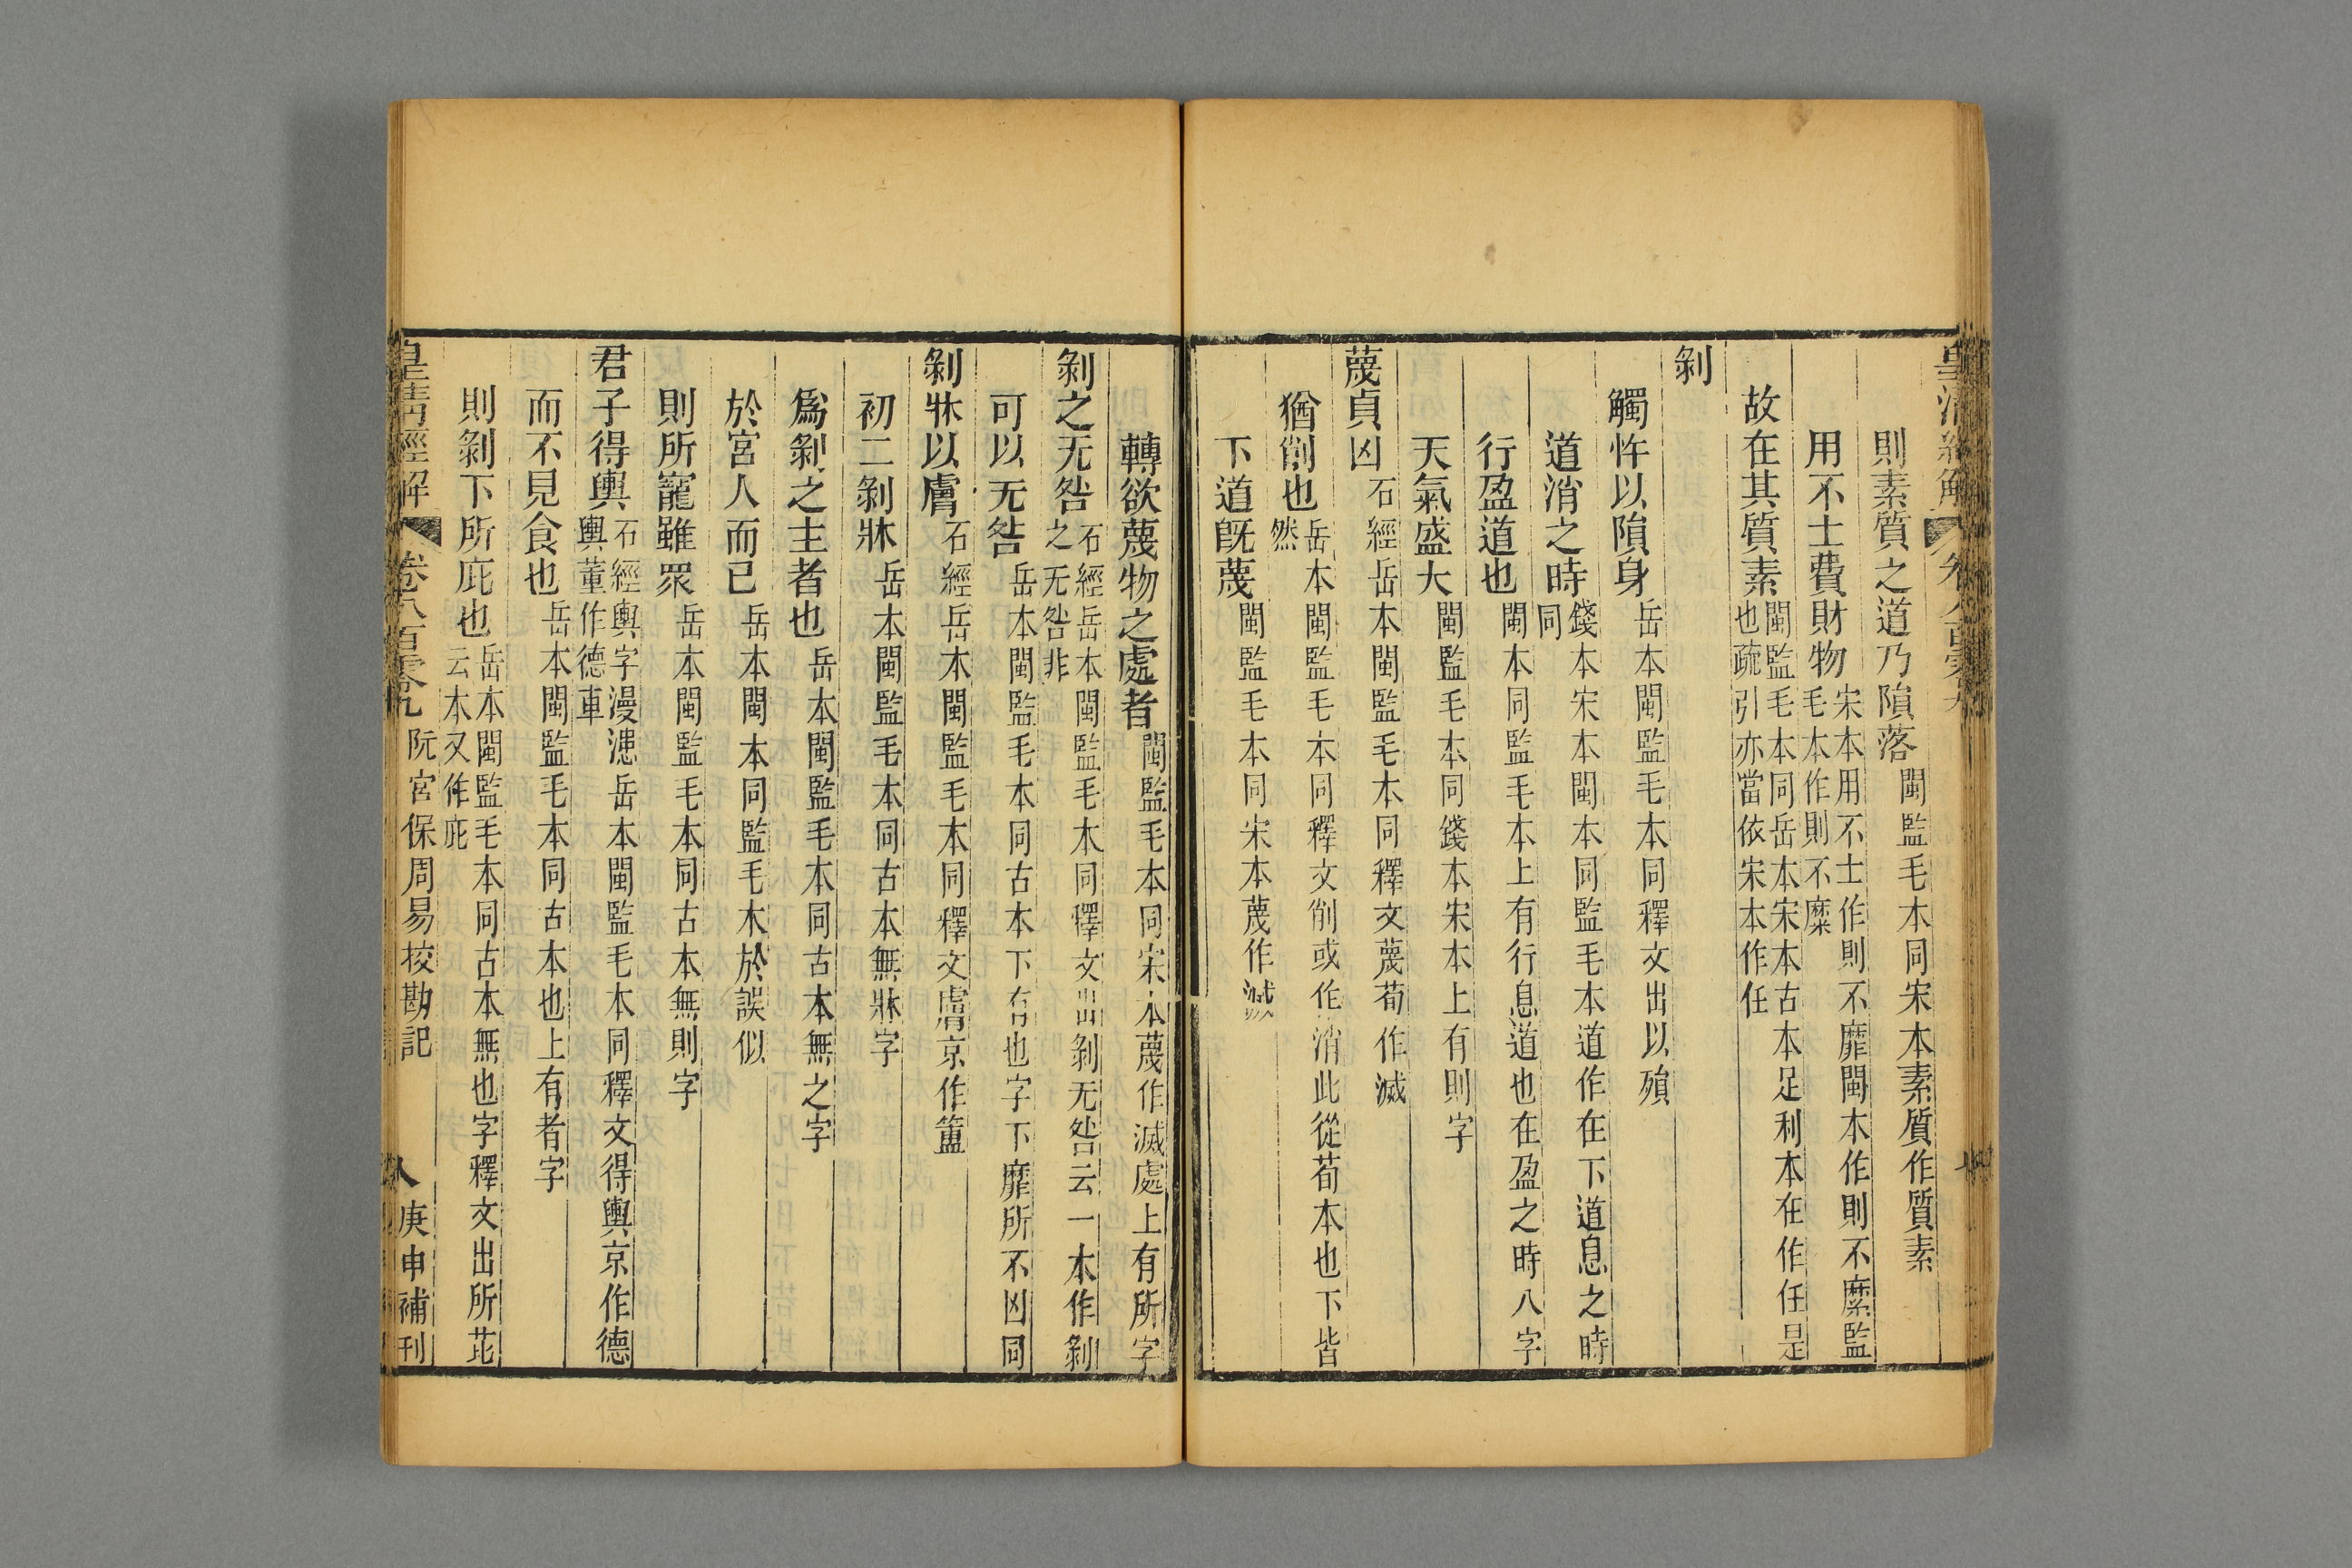 則素質之道乃隕落閩監毛本同宋本素質作質素
用不士費財物宋本用不士作則不靡閩本作則不糜監毛本作則不糜
故在其質素閩監毛本同岳本宋本古本足利本在作任是也疏引亦當依宋本作任
剝
觸忤以隕身岳本閩監毛本同釋文出以殞
道消之時錢本宋本閩本同監毛本道作在下道息之時同
行盈道也閩本同監毛本上有行息道也在盈之時八字
天氣盛大閩監毛本同錢本宋本上有則字
蔑貞凶石經岳本閩監毛本同釋文蔑荀作滅
猶削也岳本閩監毛本同釋文削或作消此從荀本也下皆然
下道旣蔑閩監毛本同宋本蔑作滅
轉欲蔑物之處者閩監毛本同宋本蔑作滅處上有所字
剝之无咎石經岳本閩監毛本同釋文出剝无咎云一本作剝之无咎非
可以无咎岳本閩監毛本同古本下有也字下靡所不凶同
剝牀以膚石經岳本閩監毛本同釋文膚京作簠
初二剝牀岳本閩監毛本同古本無牀字
爲剝之主者也岳本閩監毛本同古本無之字
於宮人而已岳本閩本同監毛本於誤似
則所寵雖眾岳本閩監毛本同古本無則字
君子得輿石經輿字漫漶岳本閩監毛本同釋文得輿京作德輿董作德車
而不見食也岳本閩監毛本同古本也上有者字
則剝下所庇也岳本閩監毛本同古本無也字釋文出所芘云本又作庇
皇清經解 卷八百零九 阮宮保周易挍勘記 八 庚申補刊